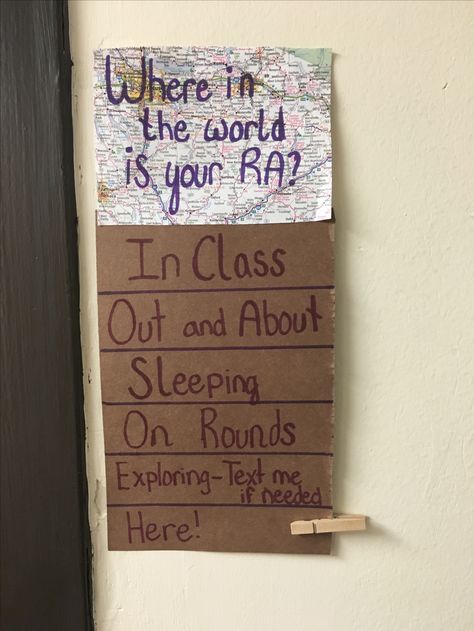 Where in
the world
is your RA?
In Class
Out and About
Sleeping
On Rounds
Exploring-Text me
if needed
Here!